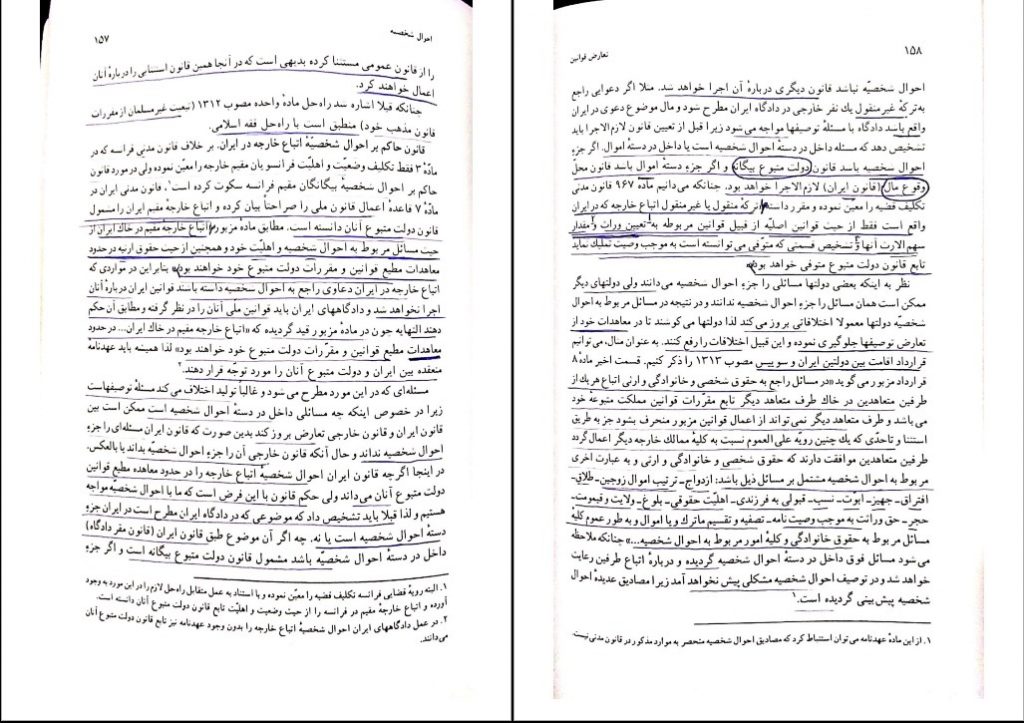 احوال شخصیه
۱۵۷
را از قانون عمومی مستثنا کرده بدیهی است که در آنجا همین قانون استثنایی را دربارهٔ آنان
اعمال خواهند کرد.
چنانکه قبلا اشاره شد راه‌حل مادهٔ واحده مصوب ۱۳۱۲ (تبعیت غیر مسلمان از مقررات
قانون مذهب خود) منطبق است با راه‌حل فقه اسلامی.
قانون حاکم بر احوال شخصیهٔ اتباع خارجه در ایران. بر خلاف قانون مدنی فرانسه که در
مادهٔ ۳ فقط تکلیف وضعیت و اهلیت فرانسویان مقیم خارجه را معین نموده ولی در مورد قانون
حاکم بر احوال شخصیهٔ بیگانگان مقیم فرانسه سکوت کرده است۱، قانون مدنی ایران در
مادهٔ ۷ قاعدهٔ اعمال قانون ملی را صراحتاً بیان کرده و اتباع خارجه مقیم ایران را مشمول
قانون دولت متبوع آنان دانسته است. مطابق مادهٔ مزبور «اتباع خارجه مقیم در خاک ایران از
حیث مسائل مربوط به احوال شخصیه و اهلیت خود و همچنین از حیث حقوق ارثیه در حدود
معاهدات مطیع قوانین و مقررات دولت متبوع خود خواهند بود» بنابراین در مواردی که
اتباع خارجه در ایران دعاوی راجع به احوال شخصیه داشته باشند قوانین ایران دربارهٔ آنان
اجرا نخواهد شد و دادگاههای ایران باید قوانین ملی آنان را در نظر گرفته و مطابق آن حکم
دهند النهایه چون در مادهٔ مزبور قید گردیده که «اتباع خارجه مقیم در خاک ایران... در حدود
معاهدات مطیع قوانین و مقررات دولت متبوع خود خواهند بود» لذا همیشه باید عهدنامهٔ
منعقده بین ایران و دولت متبوع آنان را مورد توجه قرار دهند.۲
مسئله‌ای که در این مورد مطرح می‌شود و غالباً تولید اختلاف می‌کند مسئلهٔ توصیفهاست
زیرا در خصوص اینکه چه مسائلی داخل در دستهٔ احوال شخصیه است ممکن است بین
قانون ایران و قانون خارجی تعارض بروز کند بدین صورت که قانون ایران مسئله‌ای را جزءِ
احوال شخصیه نداند و حال آنکه قانون خارجی آن را جزءِ احوال شخصیه بداند یا بالعکس.
در اینجا اگرچه قانون ایران احوال شخصیهٔ اتباع خارجه را در حدود معاهده مطیع قوانین
دولت متبوع آنان می‌داند ولی حکم قانون با این فرض است که ما با احوال شخصیه مواجه
هستیم و لذا قبلا باید تشخیص داد که موضوعی که در دادگاه ایران مطرح است در ایران جزءِ
دستهٔ احوال شخصیه است یا نه. چه اگر آن موضوع طبق قانون ایران (قانون مقر دادگاه)
داخل در دستهٔ احوال شخصیه باشد مشمول قانون دولت متبوع بیگانه است و اگر جزءِ
۱. البته رویهٔ قضایی فرانسه تکلیف قضیه را معین نموده و با استناد به عمل متقابل راه‌حل لازم را در این مورد به وجود
آورده و اتباع خارجهٔ مقیم در فرانسه را از حیث وضعیت و اهلیت تابع قانون دولت متبوع آنان دانسته است.
۲. در عمل دادگاههای ایران احوال شخصیهٔ اتباع خارجه را بدون وجود عهدنامه نیز تابع قانون دولت متبوع آنان
می‌دانند.
۱۵۸
تعارض قوانین
احوال شخصیه نباشد قانون دیگری دربارهٔ آن اجرا خواهد شد. مثلا اگر دعوایی راجع
به ترکهٔ غیر منقول یك نفر خارجی در دادگاه ایران مطرح شود و مال موضوع دعوی در ایران
واقع باشد دادگاه با مسئلهٔ توصیفها مواجه می‌شود زیرا قبل از تعیین قانون لازم‌الاجرا باید
تشخیص دهد که مسئله داخل در دستهٔ احوال شخصیه است یا داخل در دستهٔ اموال. اگر جزءِ
احوال شخصیه باشد قانون دولت متبوع بیگانه و اگر جزءِ دستهٔ اموال باشد قانون محل
وقوع مال (قانون ایران) لازم‌الاجرا خواهد بود. چنانکه می‌دانیم مادهٔ ۹۶۷ قانون مدنی
تکلیف قضیه را معین نموده و مقرر داشته: «ترکهٔ منقول یا غیر منقول اتباع خارجه که در ایران
واقع است فقط از حیث قوانین اصلیه از قبیل قوانین مربوطه به تعیین وراث و مقدار
سهم‌الارث آنها و تشخیص قسمتی که متوفی می‌توانسته است به موجب وصیت تملیك نماید
تابع قانون دولت متبوع متوفی خواهد بود»
نظر به اینکه بعضی دولتها مسائلی را جزءِ احوال شخصیه می‌دانند ولی دولتهای دیگر
ممکن است همان مسائل را جزءِ احوال شخصیه ندانند و در نتیجه در مسائل مربوط به احوال
شخصیه دولتها معمولا اختلافاتی بروز می‌کند لذا دولتها می‌کوشند تا در معاهدات خود از
تعارض توصیفها جلوگیری نموده و این قبیل اختلافات را رفع کنند. به عنوان مثال، می‌توانیم
قرارداد اقامت بین دولتین ایران و سویس مصوب ۱۳۱۳ را ذکر کنیم. قسمت اخیر مادهٔ ۸
قرارداد مزبور می‌گوید «در مسائل راجع به حقوق شخصی و خانوادگی و ارثی اتباع هر یك از
طرفین متعاهدین در خاك طرف متعاهد دیگر تابع مقررات قوانین مملکت متبوعهٔ خود
می‌باشد و طرف متعاهد دیگر نمی‌تواند از اعمال قوانین مزبور منحرف بشود جز به طریق
استثنا و تاحدی که یك چنین رویهٔ علی‌العموم نسبت به کلیهٔ ممالك خارجه دیگر اعمال گردد
طرفین متعاهدین موافقت دارند که حقوق شخصی و خانوادگی و ارثی و به عبارت اخری
مربوط به احوال شخصیه مشتمل بر مسائل ذیل باشد: ازدواج-ترتیب اموال زوجین-طلاق-
افتراق-جهیز-ابوت-نسب-قبولی به فرزندی-اهلیت حقوقی-بلوغ-ولایت و قیمومت-
حجر-حق وراثت به موجب وصیت نامه-تصفیه و تقسیم ماترك و یا اموال و به طور عموم کلیهٔ
مسائل مربوط به حقوق خانوادگی و کلیهٔ امور مربوط به احوال شخصیه...» چنانکه ملاحظه
می‌شود مسائل فوق داخل در دستهٔ احوال شخصیه گردیده و دربارهٔ اتباع طرفین رعایت
خواهد شد و در توصیف احوال شخصیه مشکلی پیش نخواهد آمد زیرا مصادیق عدیدهٔ احوال
شخصیه پیش‌بینی گردیده است.۱
۱. از این مادهٔ عهدنامه می‌توان استنباط کرد که مصادیق احوال شخصیه منحصر به موارد مذکور در قانون مدنی نیست.